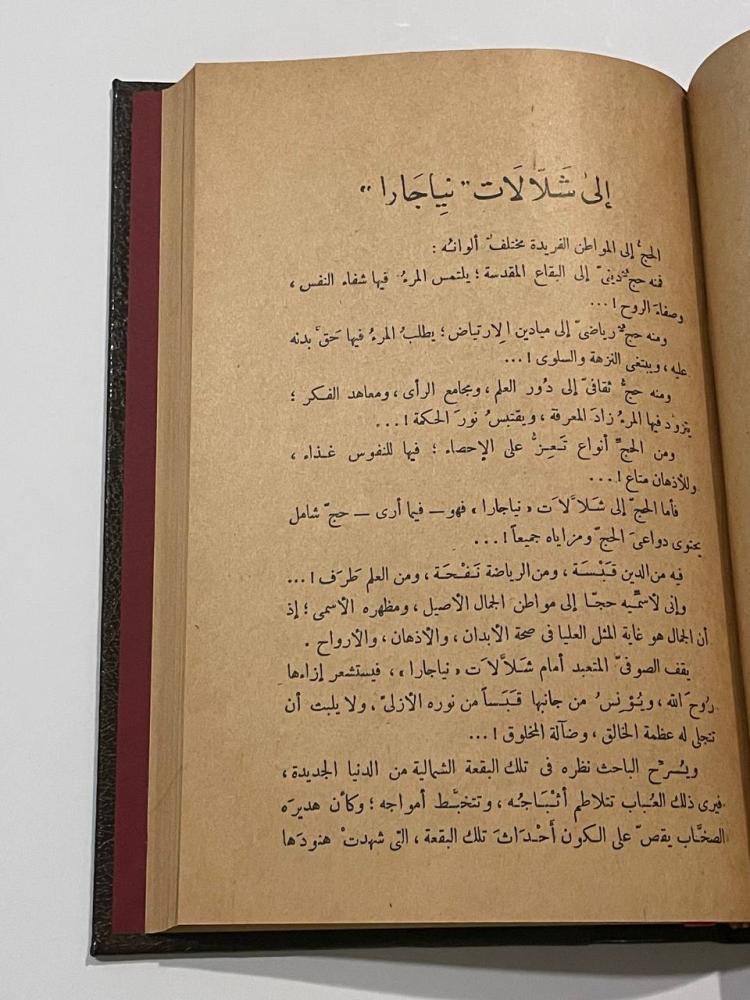 إلى شَلَّالَات " نِياجَارا "
الحجُّ إلى المواطن الفريدة مختلفٌ ألوانُه :
فمنه حجٌّ دينىّ إلى البقاع المقدسة ؛ يلتمس المرءُ فيها شفاء النفس ،
وصفاءَ الروح ! ...
ومنه حجٌّ رياضىّ إلى ميادين الارتياض ؛ يطلبُ المرءُ فيها حَقَّ بدنه
عليه ، ويبتغى النزهة والسلوى ! ...
ومنه حجٌّ ثقافىّ إلى دُور العلم ، ومجامع الرأى ، ومعاهد الفكر ؛
يتزود فيها المرءُ زادَ المعرفة ، ويقتبسُ نورَ الحكمة ! ...
ومن الحجِّ أنواع تَعِزُّ على الإحصاء ؛ فيها للنفوس غذاء ،
وللأذهان متاع ! ...
فأما الحجّ إلى شَلاَّلاَت « نياجارا » فهو — فيما أرى — حجّ شامل
يحتوى دواعىَ الحجّ ومزاياه جميعاً ! ...
فيه من الدين قَبْسَة ، ومن الرياضة نَفْحَة ، ومن العلم طَرَف ! ...
وإنى لأسمِّيه حجّا إلى مواطن الجمال الأصيل ، ومظهره الأسمى ؛ إذ
أن الجمال هو غاية المثل العليا فى صحة الأبدان ، والأذهان ، والأرواح .
يقف الصوفىّ المتعبد أمام شَلاَّلاَت « نياجارا » ، فيستشعر إزاءها
رُوحَ الله ، ويُؤنسُ من جانبها قَبَساً من نوره الأزلىّ ، ولا يلبث أن
تتجلى له عظمة الخالق ، وضآلة المخلوق ! ...
ويُسرّح الباحث نظره فى تلك البقعة الشمالية من الدنيا الجديدة ،
فيرى ذلك العُباب تتلاطم أثْبَاجُه ، وتتخبَّط أمواجه ؛ وكأن هديرَه
الصخَّاب يقصّ على الكون أَحْدَاثَ تلك البقعة ، التى شهدتْ هنودَها